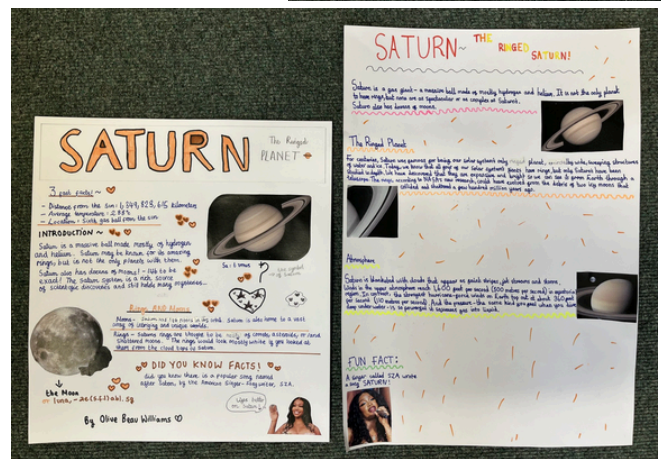 SATURN
The Ringed
PLANET
3 fast facts! ~
- Distance from the sun:
- Average temperature:
- Location: Sixth gas ball from the sun
INTRODUCTION ~
Saturn is a massive ball made mostly of hydrogen
and helium. Saturn may be known for its amazing
rings, but is not the only planets with them.
Saturn also has dozens of moons! - 146 to be
exact! The saturn system is a rich source
of scientific discovery and still holds many mysteries...
Rings AND Moons
Saturn is also home to a vast
array of intriguing and unique worlds.
Rings - Saturns rings are thought to be of comets, asteroids, or
shattered moons. The rings would look mostly white if you looked at
them from the cloud tops of Saturn.
DID YOU KNOW FACTS!
did you know there is a popular song named
after Saturn, by the Amazing Singer-Songwriter, SZA.
the Moon
or luna,
By Olive Beau Williams
SATURN~ THE
RINGED
SATURN!
Saturn is a gas giant - a massive ball made of mostly hydrogen and helium. It is not the only planet
to have rings, but none are as spectacular or as complex as Saturn's.
Saturn also has dozens of moons.
The Ringed Planet
For centuries, Saturn was famous for being our solar system's only ringed planet,
of water and ice. Today, we know that all four of our solar system's giants have rings, but only Saturn's have been
studied in depth. We have discovered that they are expansive and bright so we can see it from Earth through a
telescope. The rings, according to NASA's new research, could have evolved from the debris of two icy moons that
collided and shattered a few hundred million years ago.
Atmosphere
Saturn is blanketed with clouds that appear as faint stripes, jet streams and storms.
Winds in the upper atmosphere reach 1,600 feet per second (500 meters per second) in the equatorial
region. In contrast, the strongest hurricane-force winds on Earth top out at about 360 feet
per second (110 meters per second). And the pressure - the same kind you feel when you dive
deep underwater - is so powerful it squeezes gas into liquid.
FUN FACT:
A singer called SZA wrote
a song SATURN!